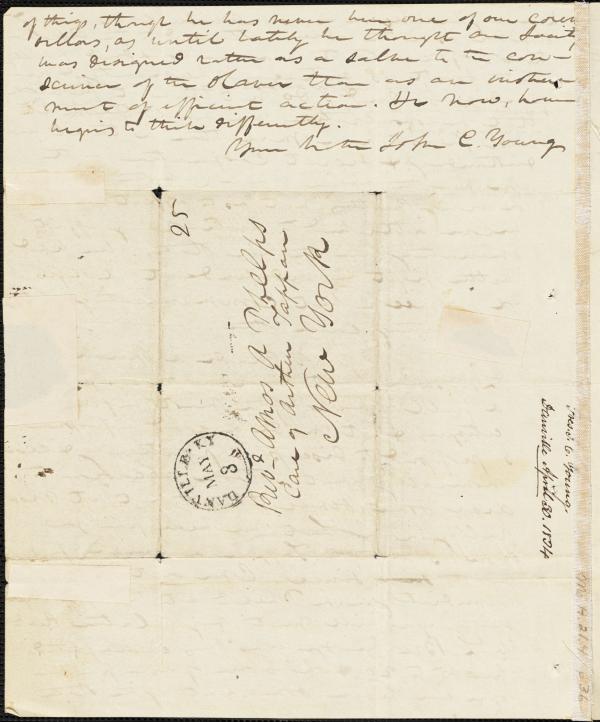 of things, though he has never been one of our coun
sellors, as until lately he thought our Society
was designed rather as a salve to the con-
science of the slaver than as an instru-
ment of efficient action. He now, how
begins to think differently.
Yours John C. Young
25
Revd Amos A Phelps
Care of Arthur Tappan
New York
DANVILLE KY
MAY
8
C. Young.
Danville April 20. 1834